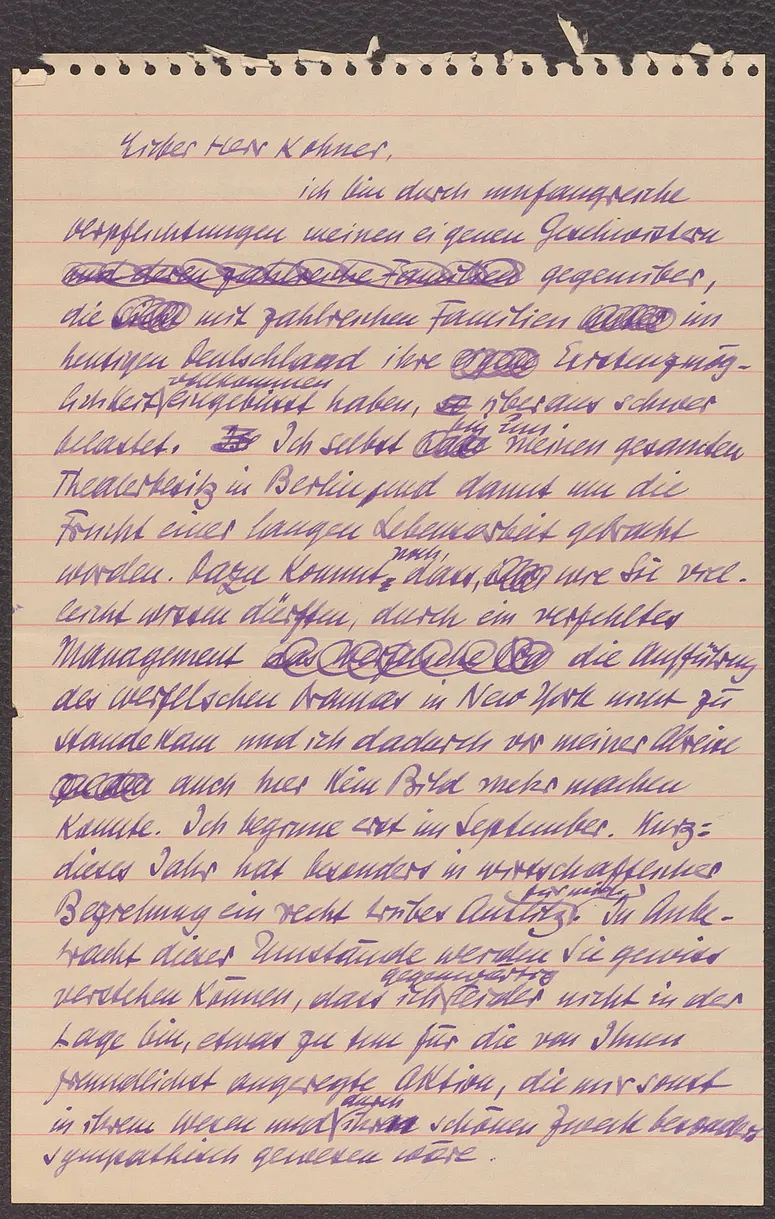 Lieber Herr Kohner,
ich bin durch umfangreiche
Verpflichtungen meinen eigenen Geschwistern
und deren zahlreiche Familien gegenüber,
die mit zahlreichen Familien im
heutigen Deutschland ihre Existenzmög-
vollkommen
lichkeit eingebüsst haben, überaus schwer
bin um
belastet. Ich selbst meinen gesamten
Theaterbesitz in Berlin und damit um die
Frucht einer langen Lebensarbeit gebracht
noch,
worden. Dazu kommt dass, wie Sie viel-
leicht wissen dürften, durch ein verfehltes
Management die Aufführung
des Werfelschen Dramas in New York nicht zu
stande kam und ich dadurch vor meiner Abreise
auch hier kein Bild mehr machen
konnte. Ich beginne erst im September. Kurz=
dieses Jahr hat besonders in wirtschaftlicher
für mich
Beziehung ein recht trübes Antlitz. In Anbe-
tracht dieser Umstände werden Sie gewiss
gegenwärtig
verstehen können, dass ich leider nicht in der
Lage bin, etwas zu tun für die von Ihnen
freundlichst angeregte Aktion, die mir sonst
durch
in ihrem Wesen und ihren schönen Zweck besonders
sympathisch gewesen wäre.